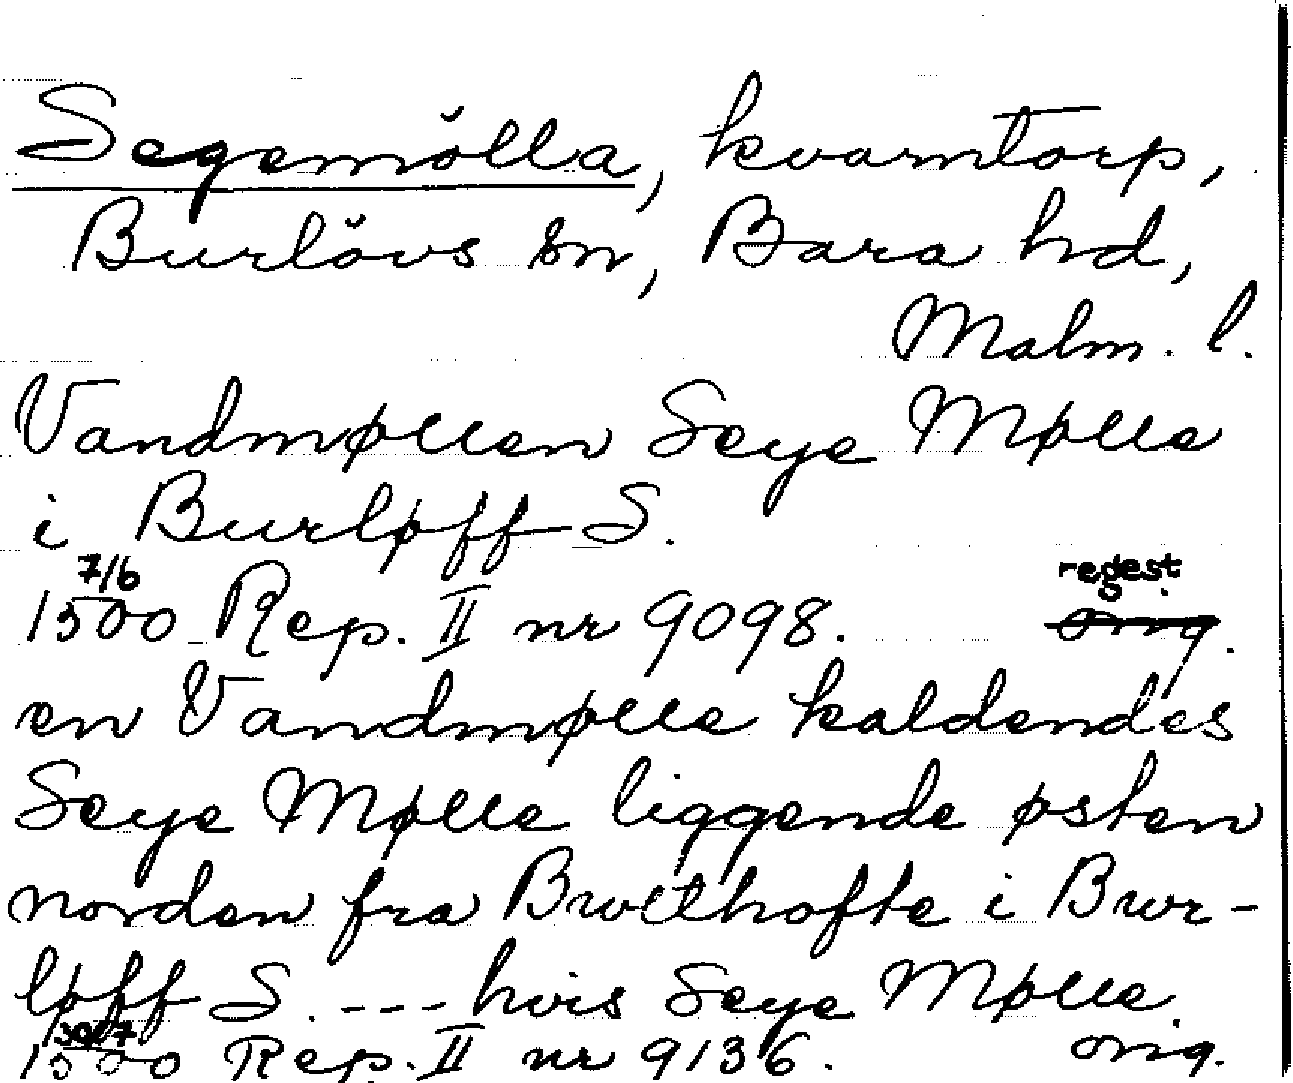 Segemölla, kvarntorp,
Burlövs sn, Bara hd,
Malm. l.
Vandmøllen Seye Mølle
i Burløff S.
7/6 regest.
1500 Rep. II nr 9098. orig.
en Vandmølle kaldendes
Seye Mølle liggende østen
norden fra Brvethofte i Bwr-
løff S. --- hvis Seye Mølle.
30/7
1500 Rep. II nr 9136. orig.